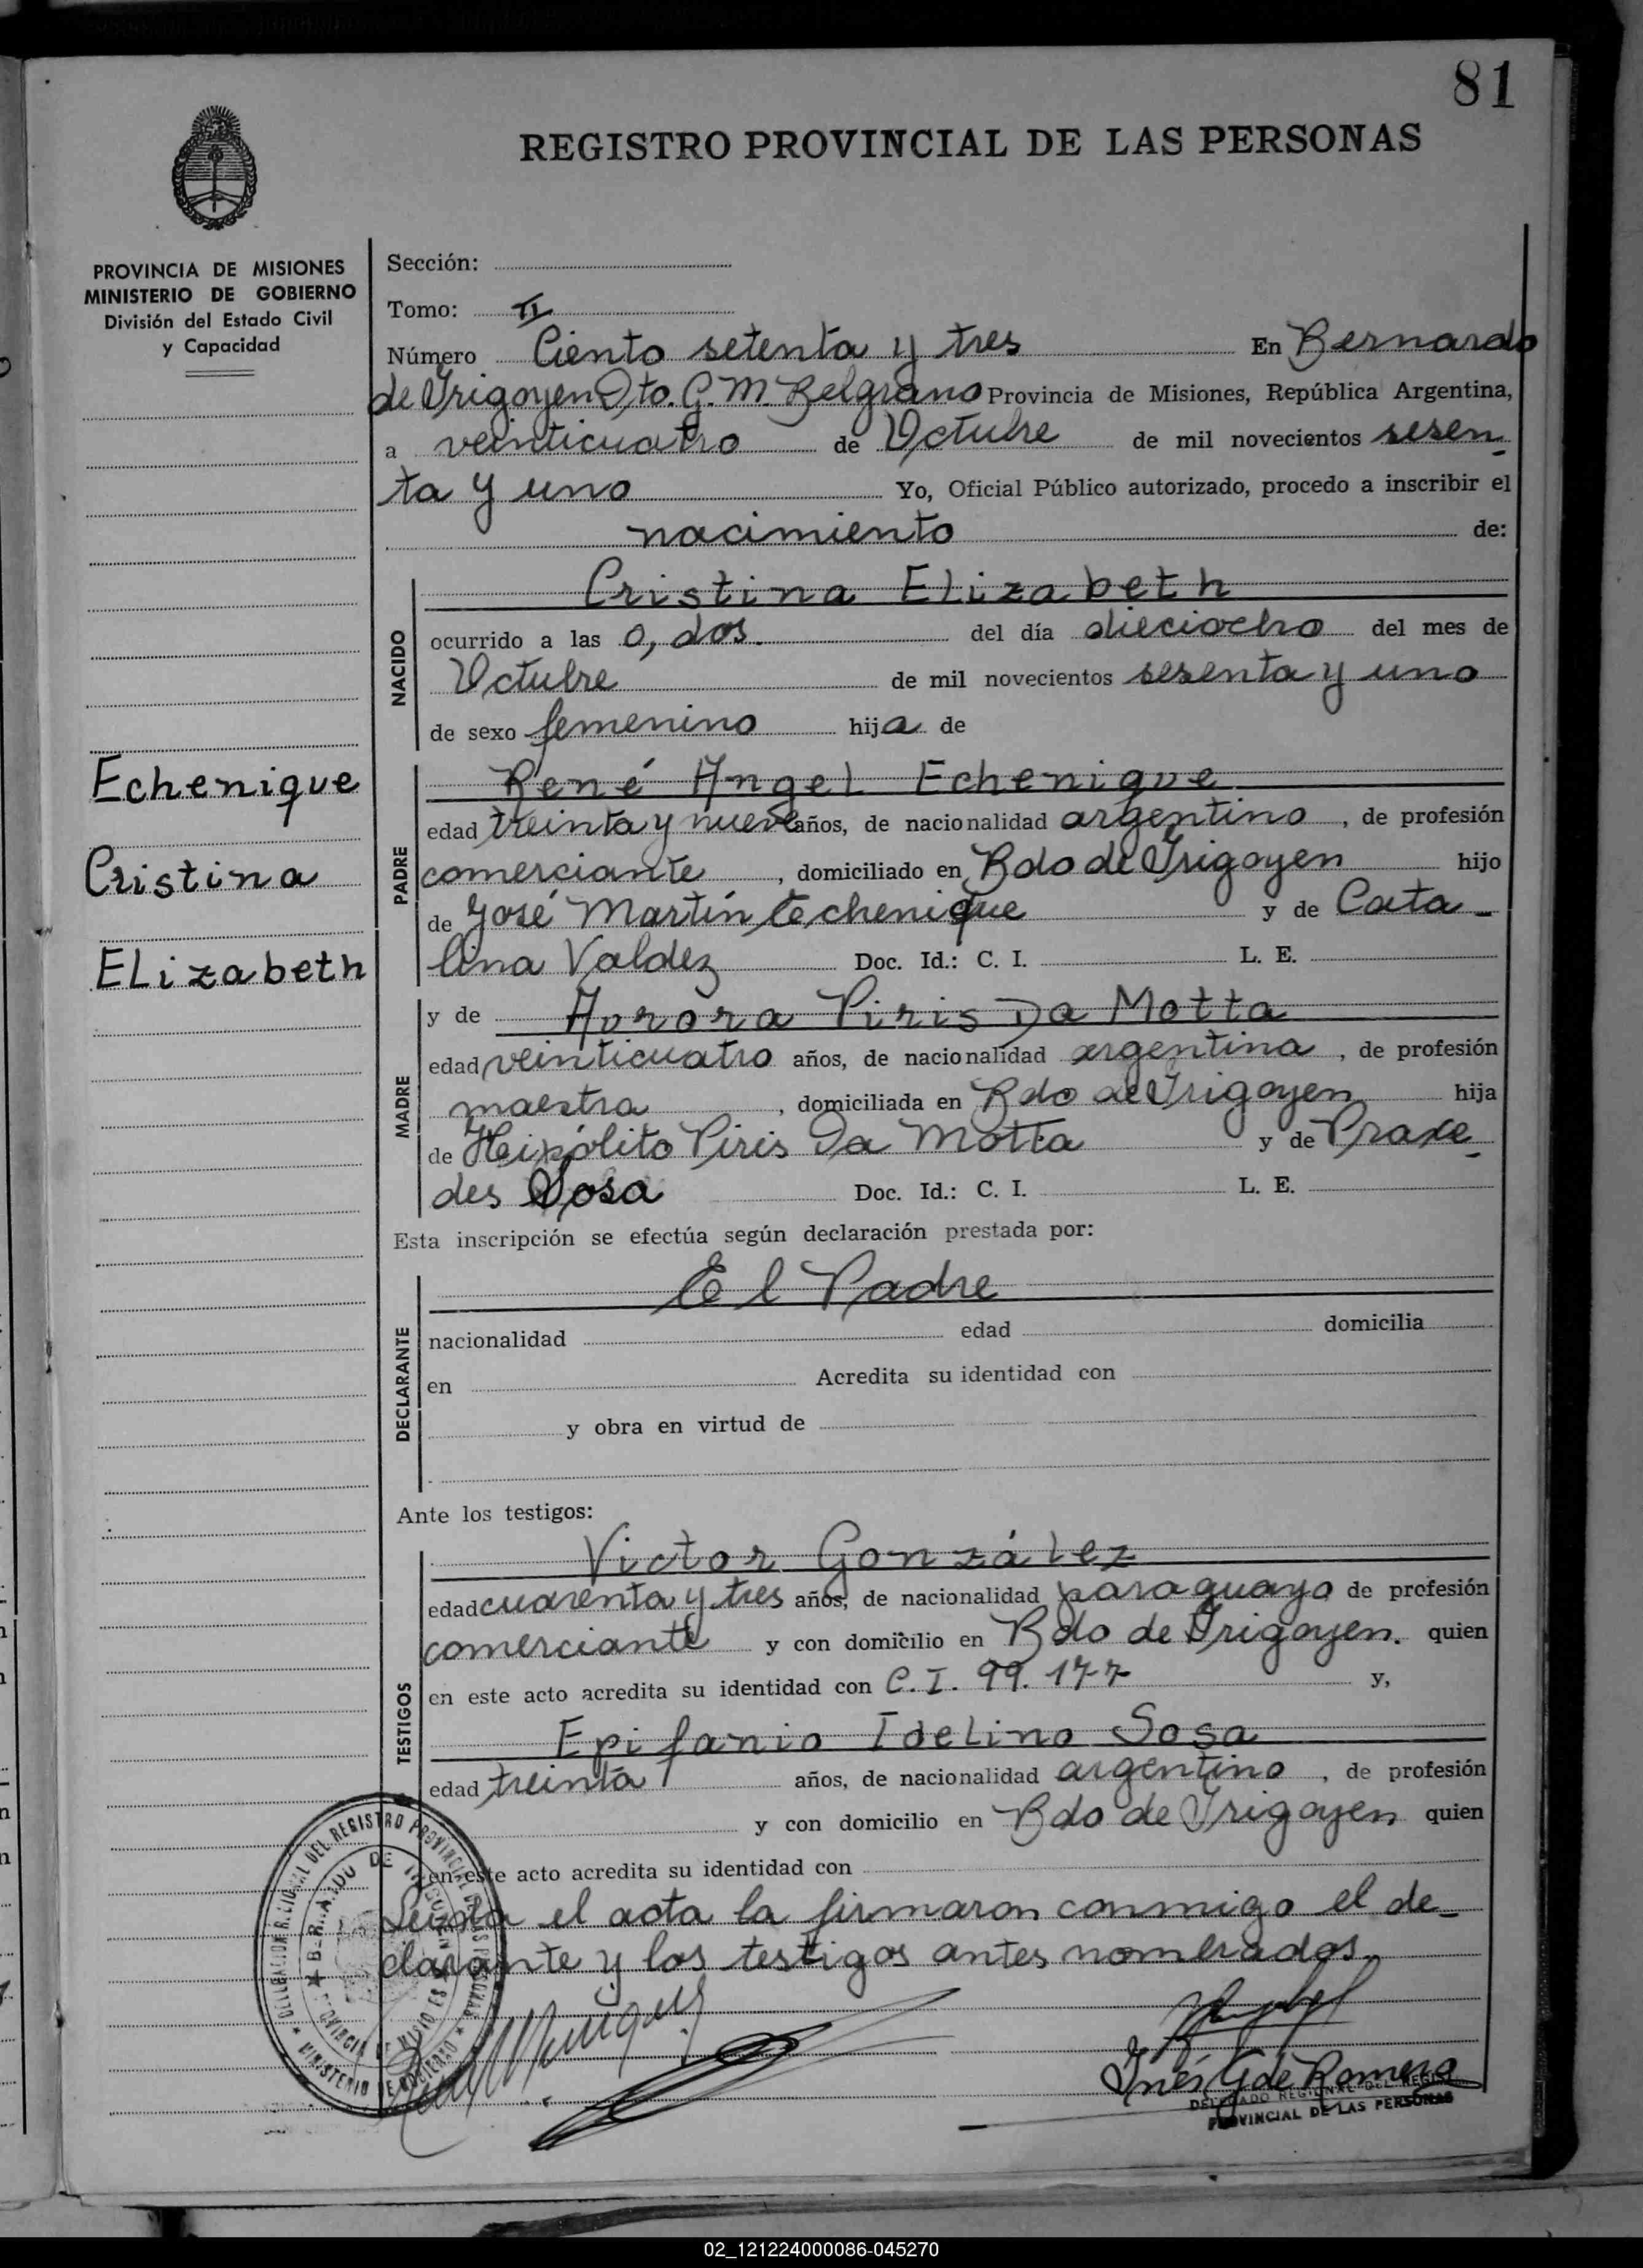 81
REGISTRO PROVINCIAL DE LAS PERSONAS
PROVINCIA DE MISIONES
MINISTERIO DE GOBIERNO
División del Estado Civil
y Capacidad
Echenique
Cristina
Elizabeth
Sección:
Tomo: II
Número Ciento setenta y tres En Bernardo
de Irigoyen Dto. G. M. Belgrano Provincia de Misiones, República Argentina,
a veinticuatro de Octubre de mil novecientos sesen-
ta y uno Yo, Oficial Público autorizado, procedo a inscribir el
nacimiento de:
NACIDO
Cristina Elizabeth
ocurrido a las 0, dos. del día dieciocho del mes de
Octubre de mil novecientos sesenta y uno
de sexo femenino hija de
PADRE
René Angel Echenique
edad treinta y nueve años, de nacionalidad argentino, de profesión
comerciante, domiciliado en Bdo de Irigoyen hijo
de José Martín Echenique y de Cata-
lina Valdez Doc. Id.: C. I. L. E.
MADRE
y de Aurora Piris Da Motta
edad veinticuatro años, de nacionalidad argentina, de profesión
maestra, domiciliada en Bdo de Irigoyen hija
de Heipólito Piris Da Motta y de Praxe-
des Sosa Doc. Id.: C. I. L. E.
Esta inscripción se efectúa según declaración prestada por:
DECLARANTE
El Padre
nacionalidad edad domicilia
en Acredita su identidad con
y obra en virtud de
Ante los testigos:
TESTIGOS
Victor González
edad cuarenta y tres años, de nacionalidad paraguayo de profesión
comerciante y con domicilio en Bdo de Irigoyen. quien
en este acto acredita su identidad con C. I. 99.177 y,
Epifanio Idelino Sosa
edad treinta años, de nacionalidad argentino, de profesión
y con domicilio en Bdo de Irigoyen quien
en este acto acredita su identidad con
Leida el acta la firmaron conmigo el de-
clarante y los testigos antes nombrados.
DELEGACION REGIONAL DEL REGISTRO PROVINCIAL DE LAS PERSONAS
MINISTERIO DE GOBIERNO
BERNARDO DE IRIGOYEN
PROVINCIA DE MISIONES
Inés G de Romero
DELEGADO REGIONAL DEL REGISTRO
PROVINCIAL DE LAS PERSONAS
02_121224000086-045270